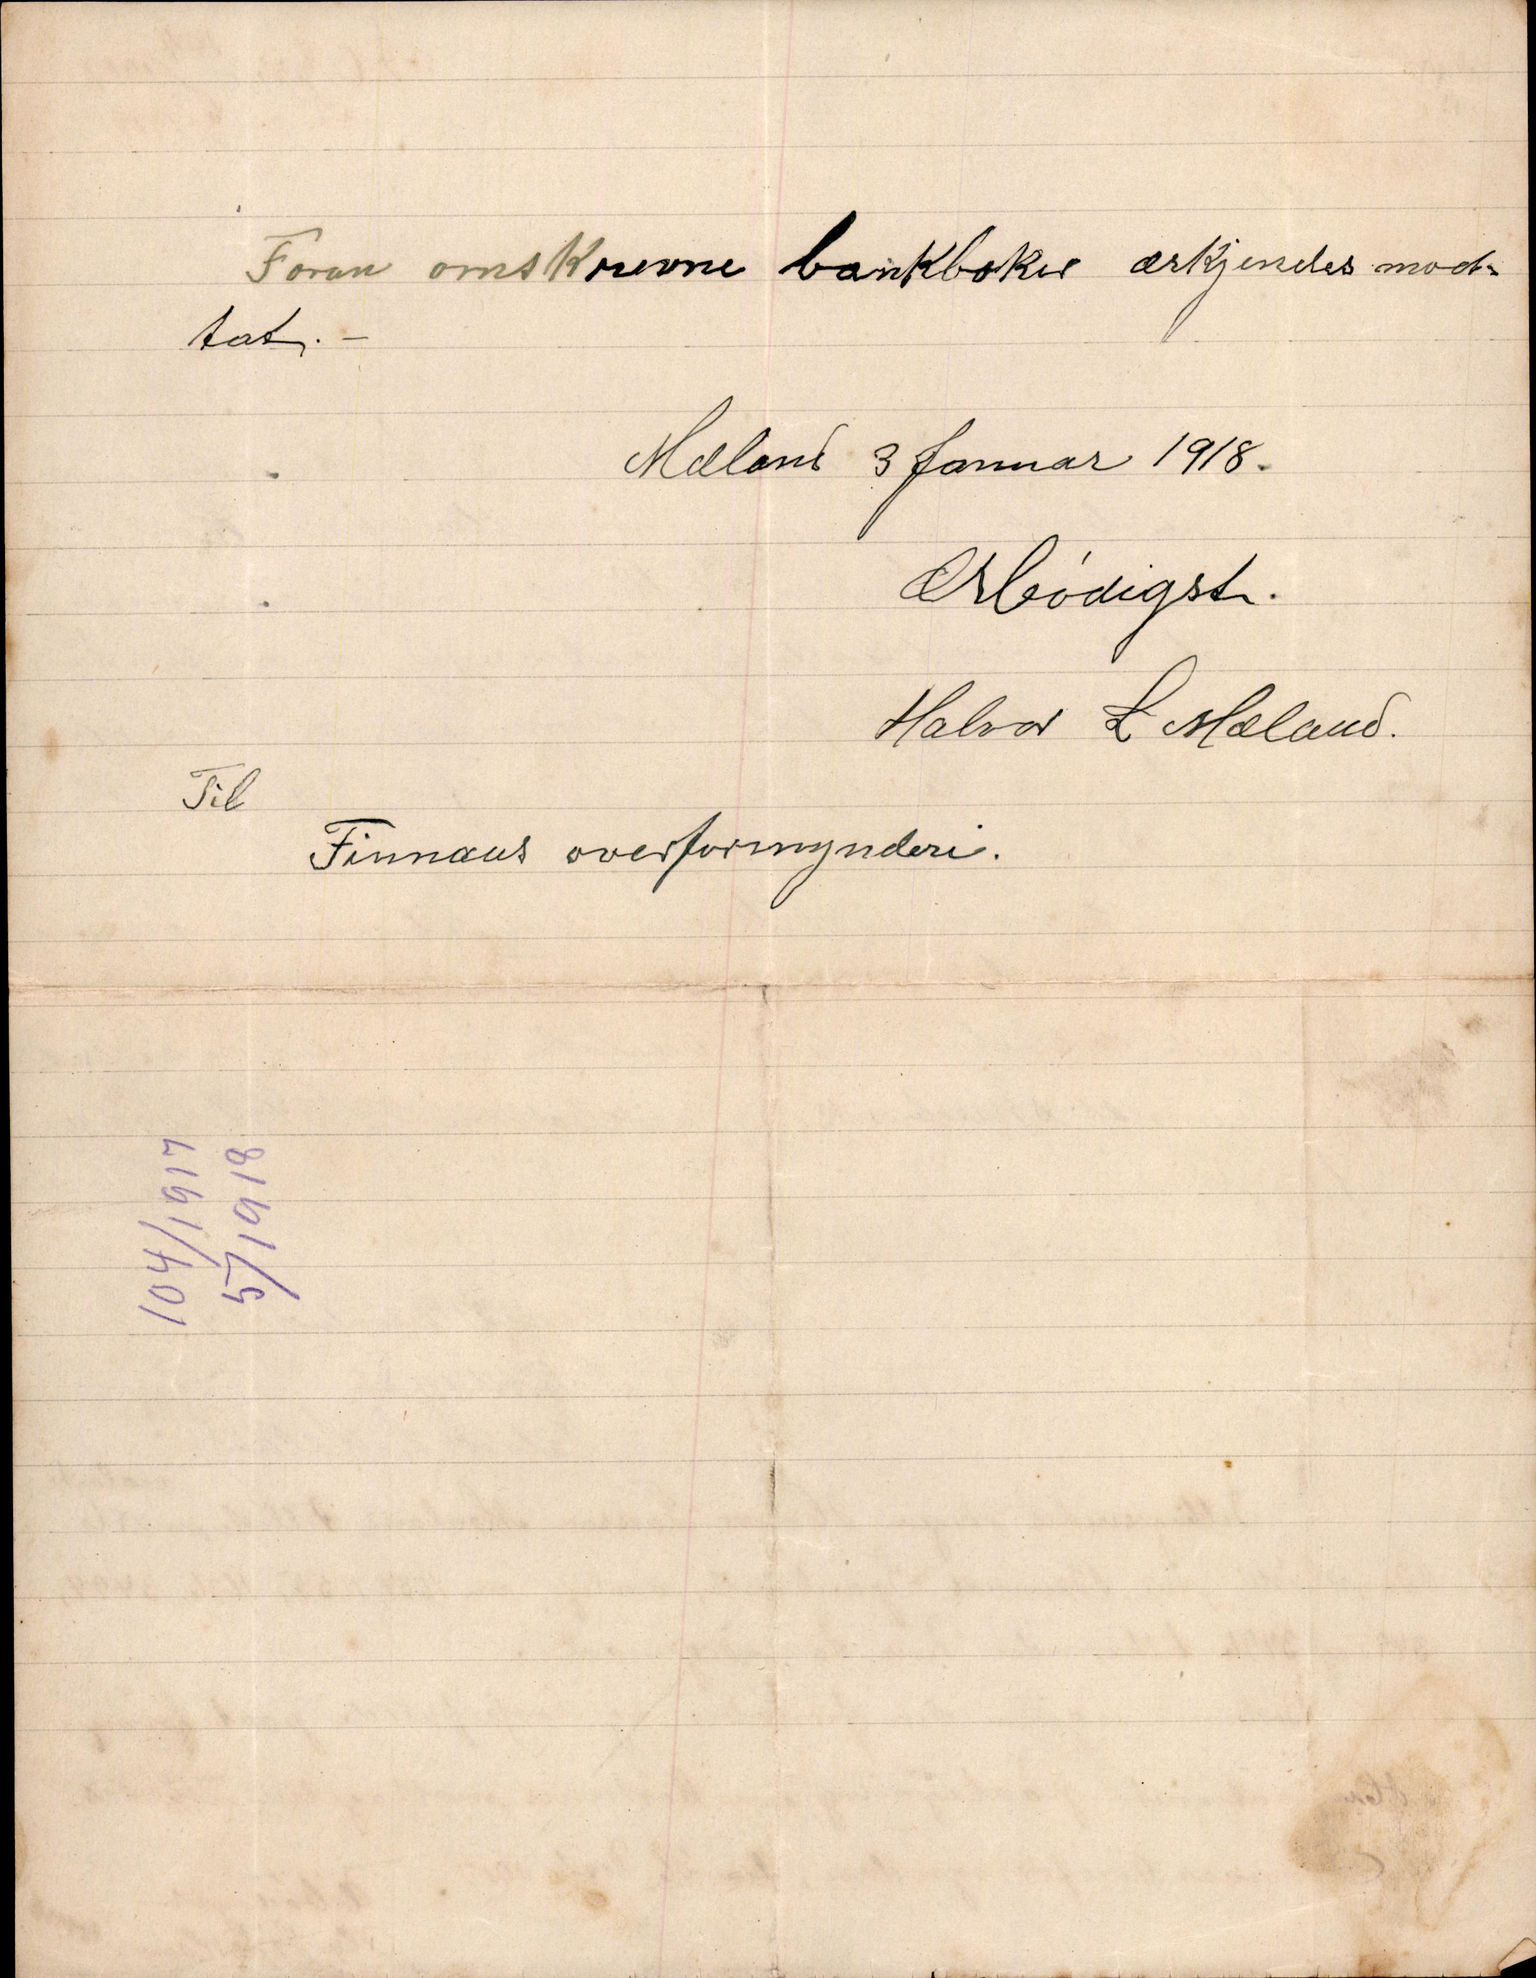 Foran omskrevne bankbøker ærkjendes mod-
tat. –
Mæland 3 Januar 1918.
Ærbödigst.
Halvor L Mæland.
Til
Finnaas overformynderi.
104/1917
5/1918